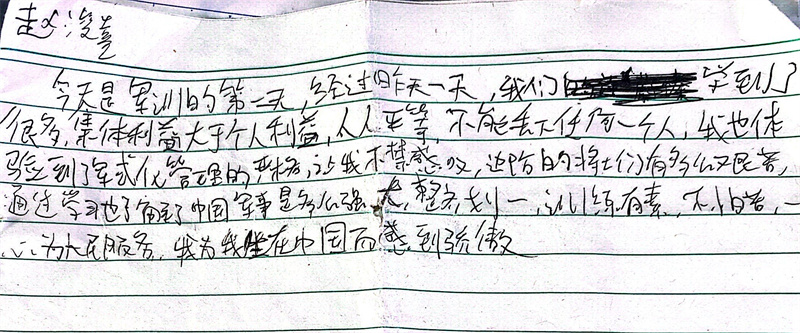 赵浚喆
今天是军训的第一天,经过昨天一天,我们学到了
很多,集体利益大于个人利益,人人平等,不能丢下任何一个人,我也体
验到了军式化管理的严格,让我不禁感叹,边防的将士们有多么艰苦,
通过学习也了解了中国军事是多么强大,整齐划一,训练有素,不怕苦,一
心为人民服务,我为我生在中国而感到骄傲